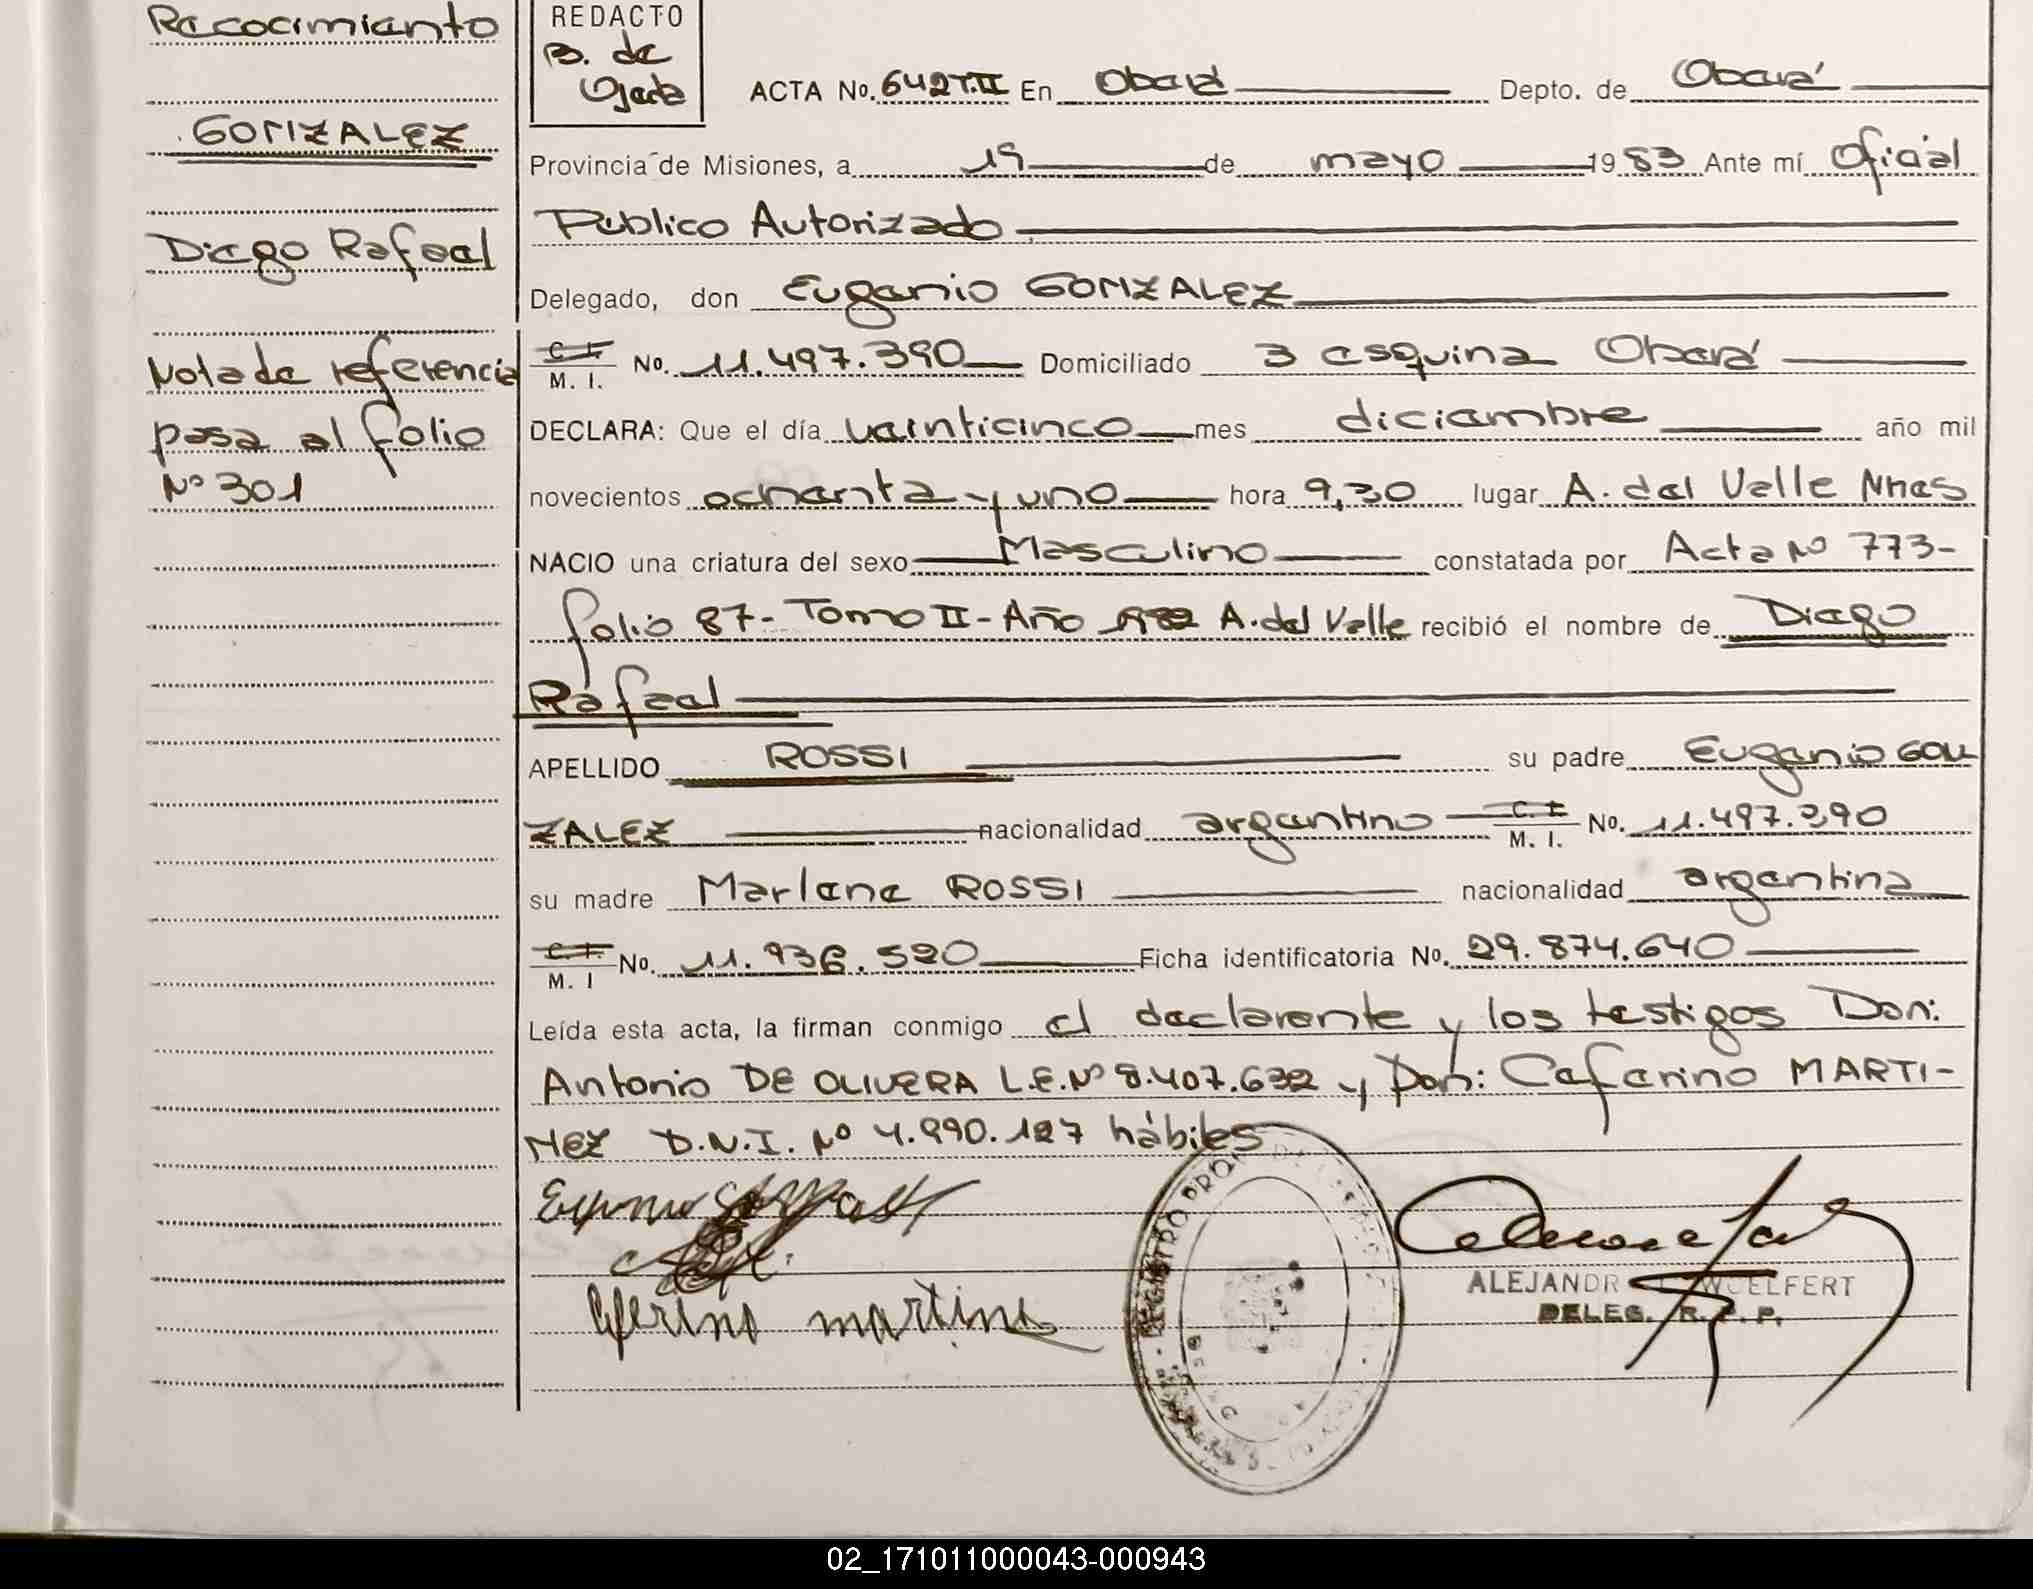 Reconocimiento
GONZALEZ
Diego Rafael
Nota de referencia
pasa al folio
Nº 301
REDACTO
B. de
Ojeda
ACTA No. 642 T.II En Oberá Depto. de Oberá
Provincia de Misiones, a 19 de mayo 1983 Ante mí Oficial
Público Autorizado
Delegado, don Eugenio GONZALEZ
C. I. / M. I. No. 11.497.390 Domiciliado 3 esquina Oberá
DECLARA: Que el día veinticinco mes diciembre año mil
novecientos ochenta y uno hora 9,30 lugar A. del Valle Mnes
NACIO una criatura del sexo Masculino constatada por Acta Nº 773-
folio 87- Tomo II - Año 1982 A. del Valle recibió el nombre de Diego
Rafael
APELLIDO ROSSI su padre Eugenio GON
ZALEZ nacionalidad argentino C. I. / M. I. No. 11.497.390
su madre Marlene ROSSI nacionalidad argentina
C. I. / M. I No. 11.936.520 Ficha identificatoria No. 29.874.640
Leída esta acta, la firman conmigo el declarante y los testigos Don:
Antonio DE OLIVERA L.E. Nº 8.407.632 y Don: Ceferino MARTI-
NEZ D.N.I. Nº 4.990.127 hábiles
Ceferino martinez
ALEJANDR WOELFERT
DELEG. R. P. P.
02_171011000043-000943